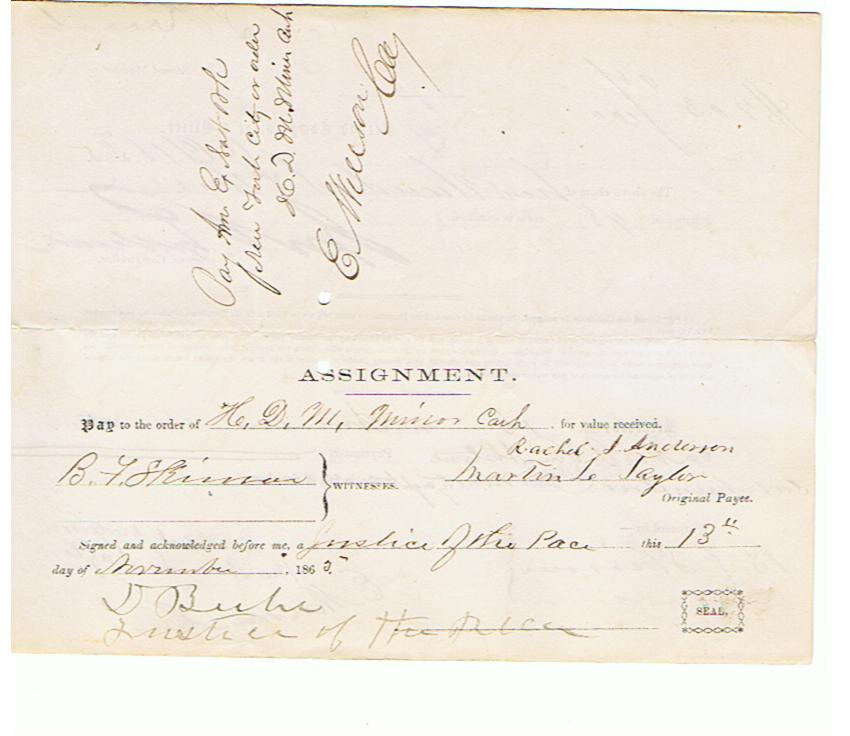 Pay Am. Ex. Nat. Bk
New York City or order
H. D. M. Miner Cash
E Wilson Cas
ASSIGNMENT.
Pay to the order of H. D. M. Minor Cash . for value received.
Rachel J. Anderson
B. F. Skinner } WITNESSES. Martin Taylor
Original Payee.
Signed and acknowledged before me, a Justice of the Pace this 13th
day of November , 1865.
D
Justice of the Peace
SEAL.